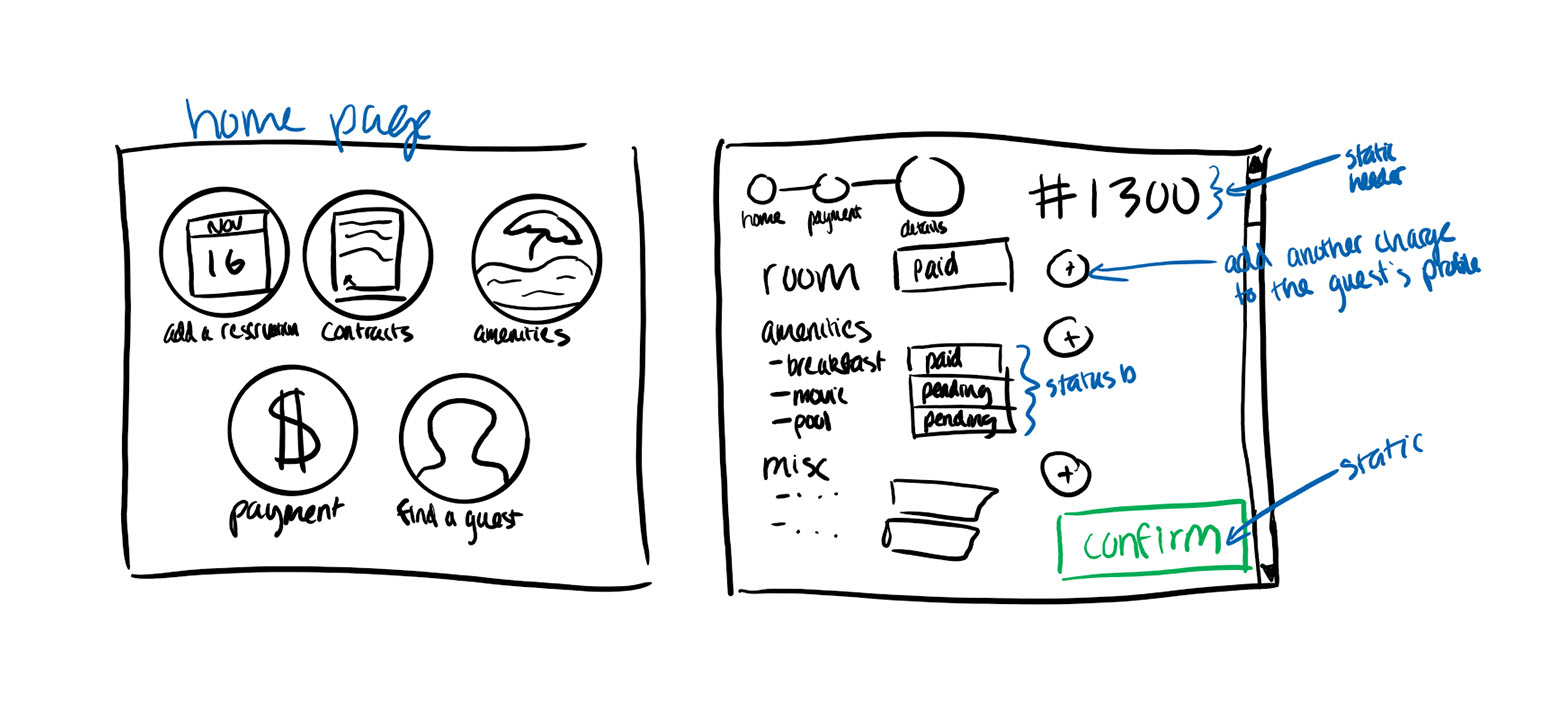 home page
NOV
16
add a reservation
contracts
amenities
$
payment
find a guest
home
payment
details
#1300
static
header
room
paid
+
add another charge
to the guest's profile
amenities
+
- breakfast
paid
- movie
pending
- pool
pending
status b
misc
+
- . . .
- . . .
confirm
static